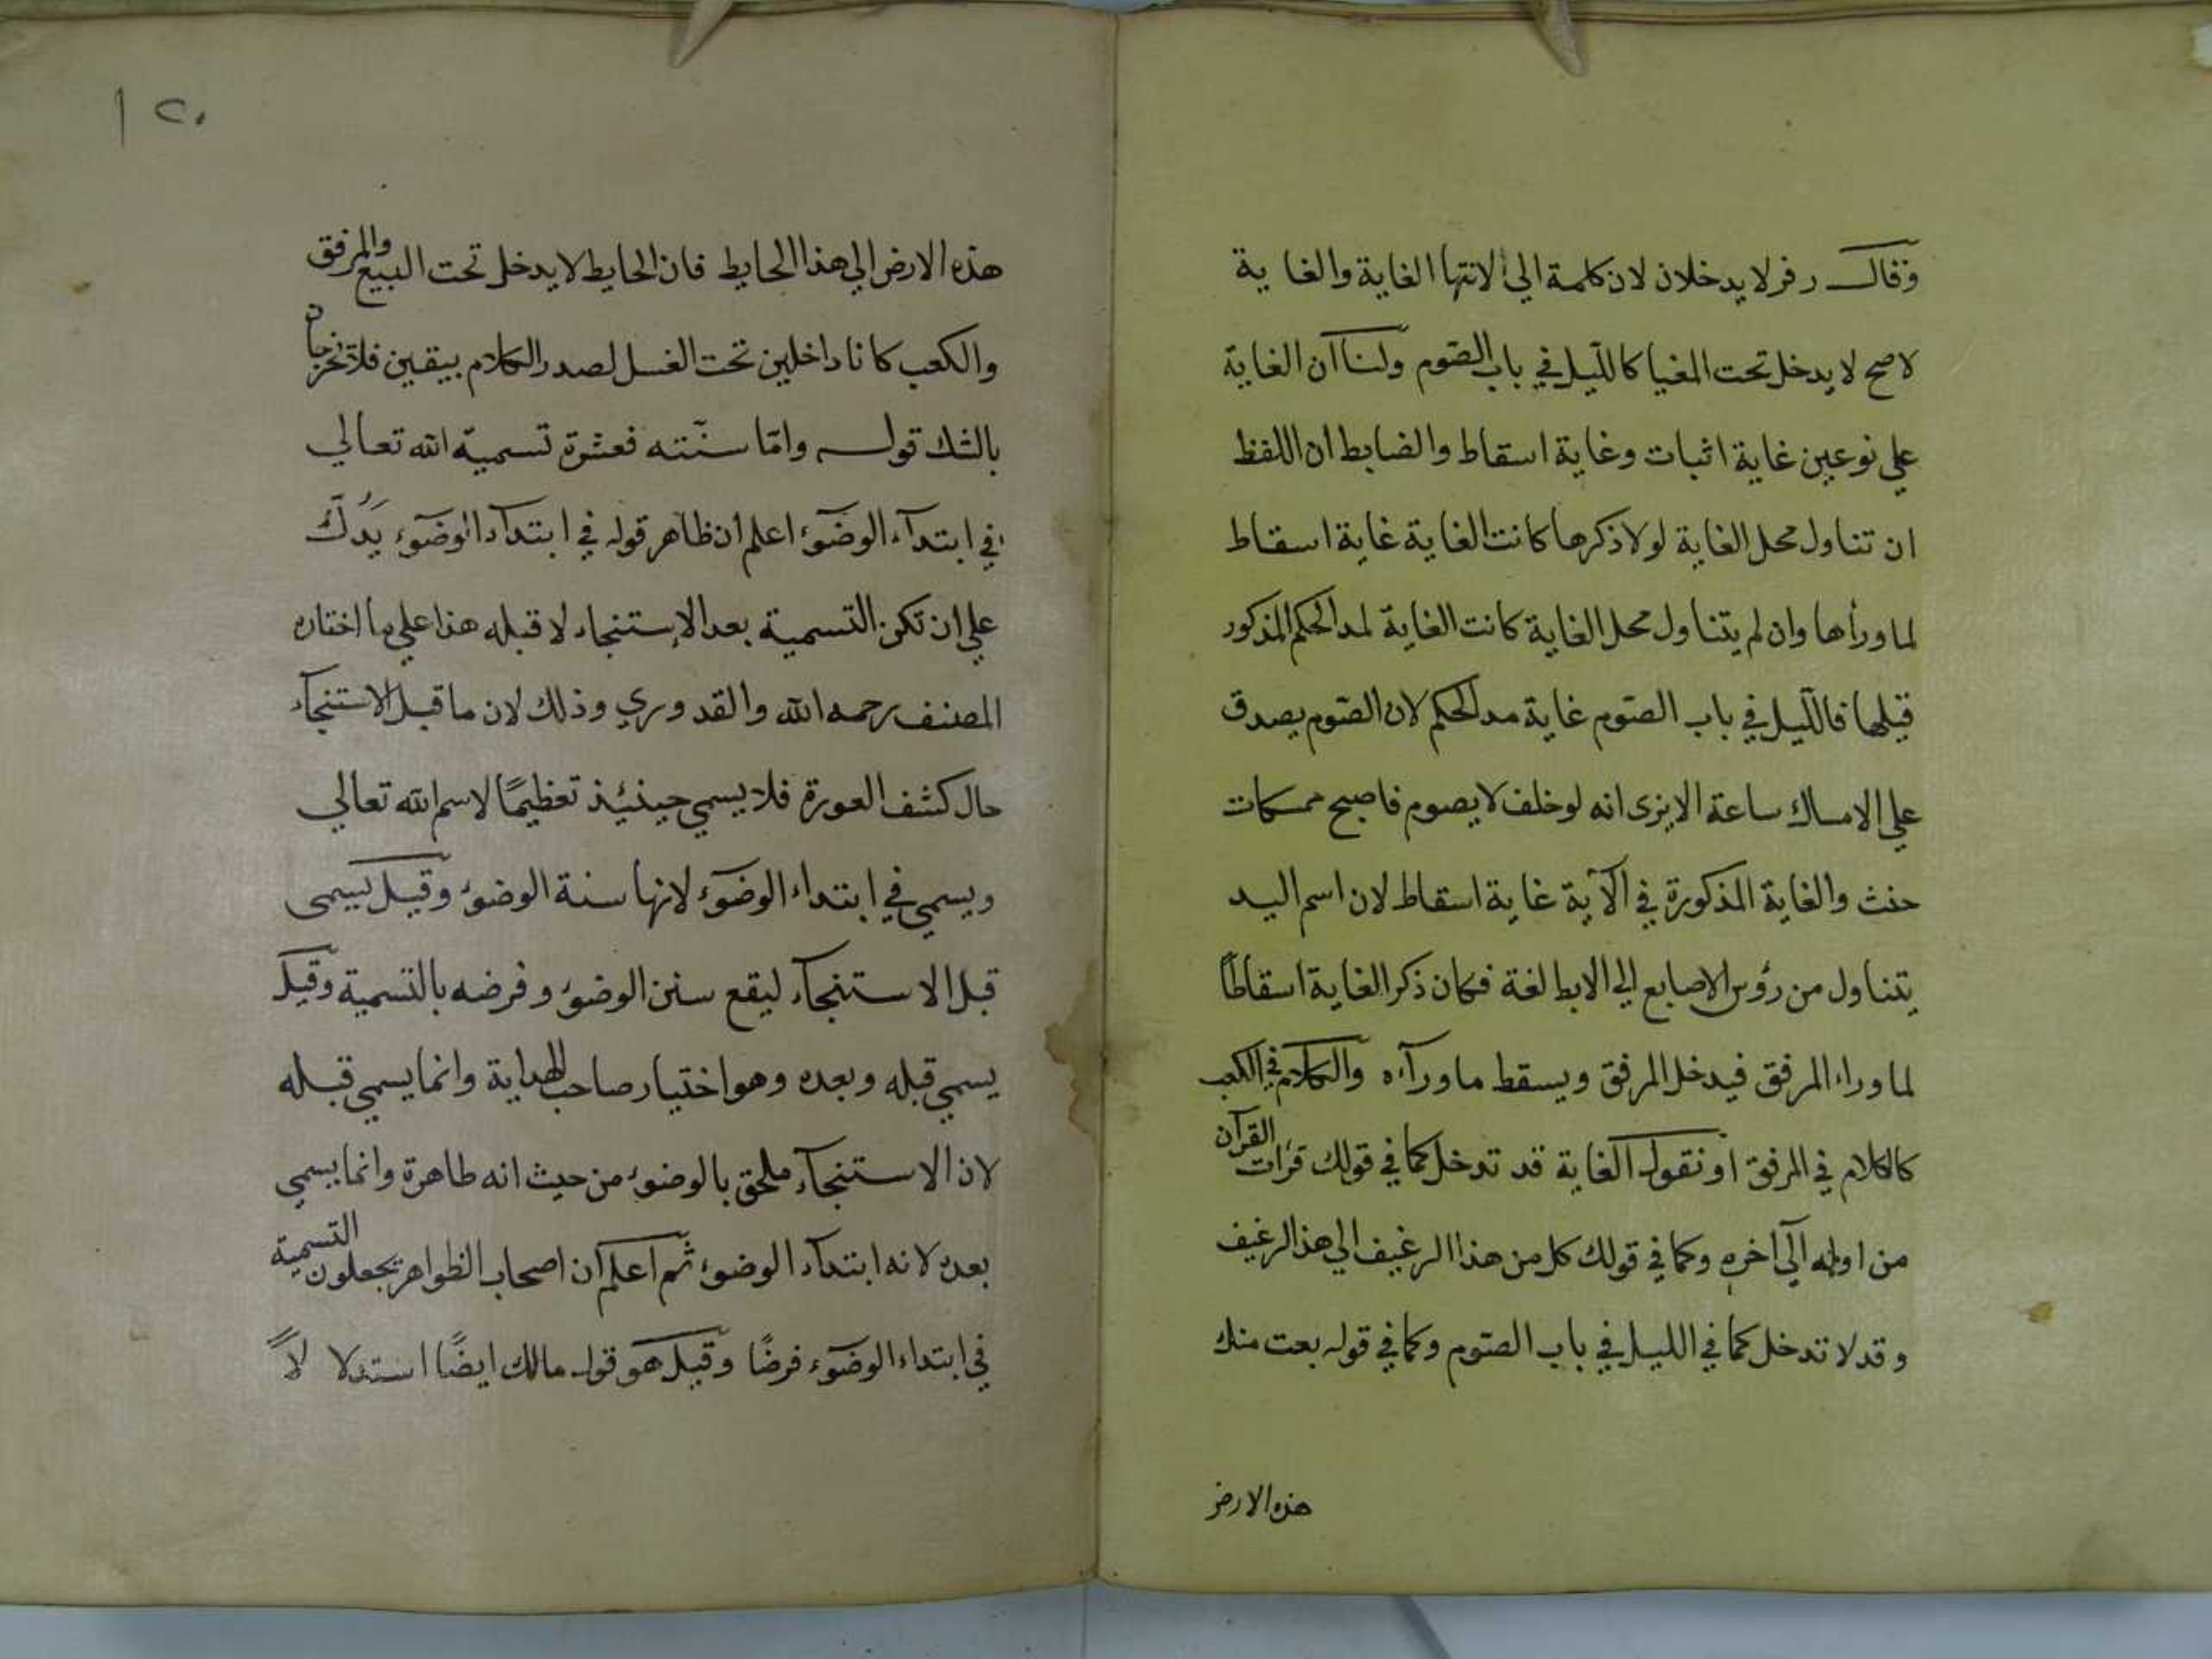 وقال زفر لا يدخلان لان كلمة الي لانتها الغاية والغاية
لاصح لا يدخل تحت المغيا كالليل في باب الصوم ولنا ان الغاية
علي نوعين غاية اثبات وغاية اسقاط والضابط ان اللفظ
ان تناول محل الغاية لولا ذكرها كانت الغاية غاية اسقاط
لما ورأها وان لم يتناول محل الغاية كانت الغاية لمد الحكم المذكور
قبلها فالليل في باب الصوم غاية مد الحكم لان الصوم يصدق
علي الامساك ساعة الا يرى انه لو خلف لا يصوم فاصبح
حنث والغاية المذكورة في الآية غاية اسقاط لان اسم اليد
يتناول من رؤس الاصابع الي الابط لغة فكان ذكر الغاية اسقاطًا
لما وراء المرفق فيدخل المرفق ويسقط ما ورآءه والكلام في الكعب
كالكلام في المرفق او نقول الغاية قد تدخل كما في قولك قرأت القرآن
من اوله الي اخره وكما في قولك كل من هذا الرغيف الي هذ الرغيف
وقد لا تدخل كما في الليل في باب الصوم وكما في قوله بعت منك
هذه الارض
٢٠
هذه الارض الي هذا الحايط فان الحايط لا يدخل تحت البيع والمرفق
والكعب كانا داخلين تحت الغسل لصدر الكلام بيقين فلا تخرجان
بالشك قوله وامّا سنّته فعشرة تسمية الله تعالي
في ابتدآء الوضوء اعلم ان ظاهر قوله في ابتدآء الوضوء يدلّك
علي ان تكن التسمية بعد الاستنجاء لا قبله هذا علي ما اختاره
المصنف رحمه الله والقدوري وذلك لان ما قبل الاستنجآء
حال كشف العورة فلا يسمي حينئذ تعظيمًا لاسم الله تعالي
ويسمي في ابتداء الوضوء لانها سنة الوضوء وقيل يسمى
قبل الاستنجآء ليقع سنن الوضوء وفرضه بالتسمية وقيل
يسمي قبله وبعده وهو اختيار صاحب الهداية وانما يسمي قبله
لان الاستنجآء ملحق بالوضوء من حيث انه طاهرة وانما يسمي
بعده لانه ابتدآء الوضوء ثم اعلم ان اصحاب الظواهر يجعلون التسمية
في ابتداء الوضوء فرضًا وقيل هو قول مالك ايضًا استدلا لاً